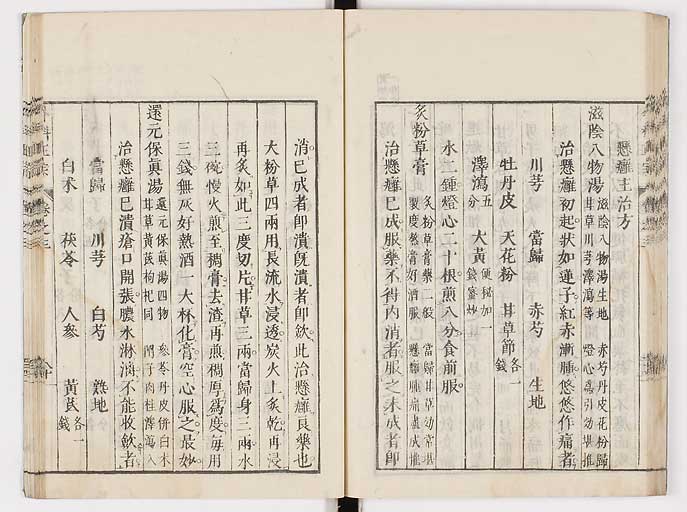 懸癰主治方
滋陰八物湯 滋陰八物湯生地 赤芍丹皮花粉歸
甘草川芎澤瀉等 燈心為引効堪推
治懸癰初起狀如蓮子紅赤漸腫悠悠作痛者
川芎 當歸 赤芍 生地
牡丹皮 天花粉 甘草節各一錢
澤瀉五分 大黃便秘加一錢蜜炒
水二鍾燈心二十根煎八分食前服
炙粉草膏 炙粉草膏藥一般 當歸甘草効常堪
製度熬膏好酒服 懸癰腫痛
治懸癰巳成服藥不得內消者服之未成者即
消巳成者即潰既潰者即斂此治懸癰良藥也
大粉草四兩用長流水浸透炭火上炙乾再浸
再炙如此三度切片甘草三兩當歸身三兩水
三碗慢火煎至稠膏去渣再煎稠厚為度每用
三錢無灰好熱酒一大杯化膏空心服之最妙
還元保真湯 還元保真湯四物 參苓丹皮併白朮
甘草黃芪枸杞同 肉桂澤瀉入
治懸癰巳潰瘡口開張膿水淋漓不能收斂者
當歸 川芎 白芍 熟地
白朮 茯苓 人參 黃芪各一錢